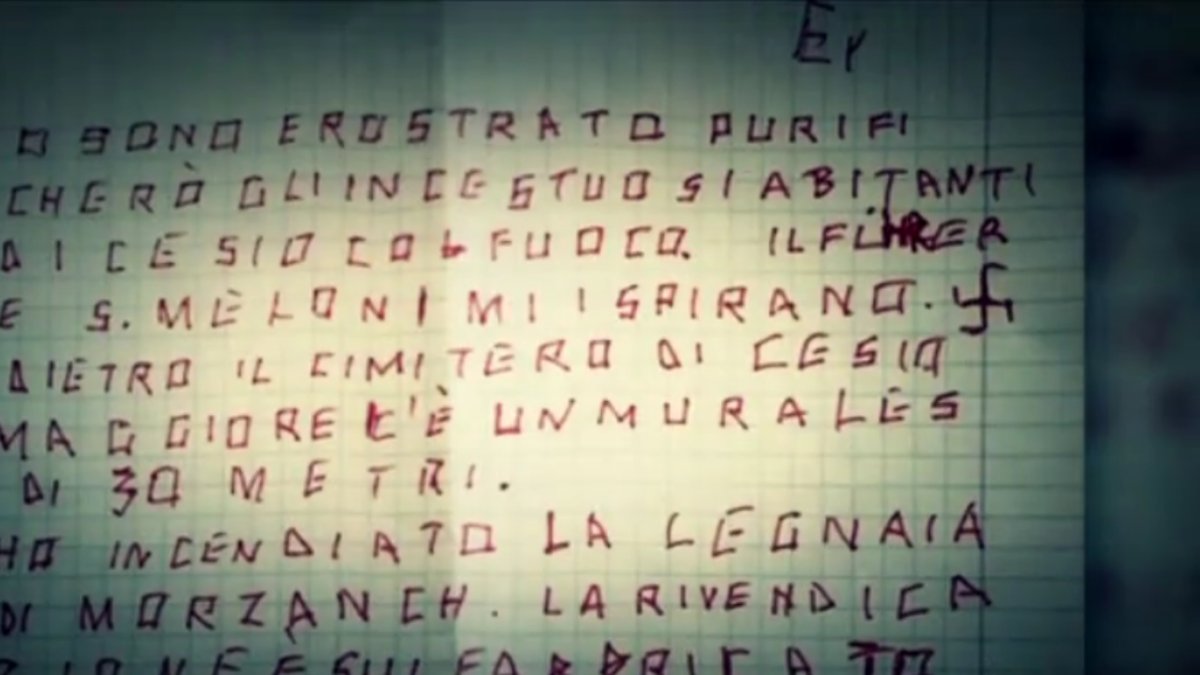 Er
O SONO EROSTRATO PURIFI
CHERÒ GLI INCESTUOSI ABITANTI
DI CESIO COL FUOCO. IL FÜHRER
E S. MELONI MI ISPIRANO. 卐
DIETRO IL CIMITERO DI CESIO
MAGGIORE C'È UN MURALES
DI 30 METRI.
HO INCENDIATO LA LEGNAIA
DI MORZANCH. LA RIVENDICA
ZIONE È SUL FABBRICATO